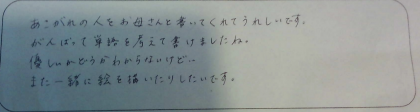 あこがれの人をお母さんと書いてくれてうれしいです。
がんばって単語を考えて書けましたね。
優しいかどうかわからないけど…
また一緒に絵を描いたりしたいです。